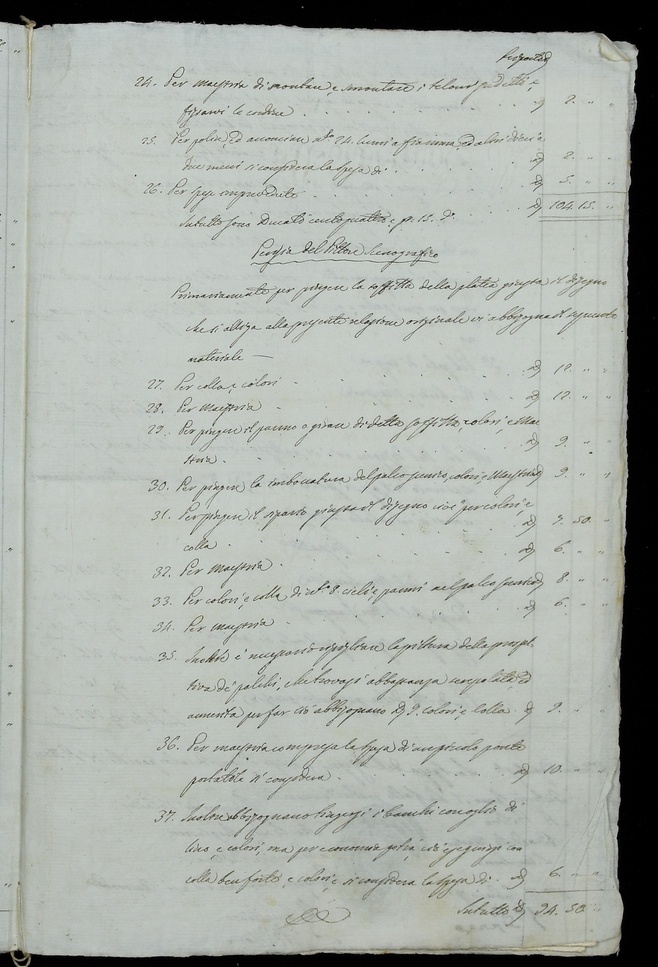 Riportasi
24. Per maestria di smontare, e montare i teloni predetti, e
fissarvi le cordine . . . . . . D. 2. " "
25. Per polire, ed acconciare N.º 24. lumi a fiamma, ed altri
due mesi si considera la spesa di . . . . D. 2. " "
26. Per spese imprevedute . . . . . D. 5. " "
In tutto sono Ducati centoquattro, e gr. 15. D. 104. 15. "
Perizia del Pittore Scenografico
Primieramente per pingere la soffitta della platea giusta il disegno
che si alliga alla presente relazione originale vi abbisogna il seguente
materiale —
27. Per colla, e colori . . . . . D. 12. " "
28. Per maestria . . . . . D. 12. " "
29. Per pingere il panno o giran di detta soffitta, colori, e Mae
stria . . . . . D. 9. " "
30. Per pingere la imboccatura del palco scenico, colori e Maestria D. 9. " "
31. Per pingere il sipario giusta il disegno cioè per colori, e
colla . . . . . D. 9. 50. "
32. Per maestria . . . . . D. 6. " "
33. Per colori, e colla di N.º 8. cieli, e panni nel palco scenico D. 8. " "
34. Per maestria . . . . . D. 6. " "
35. Inoltre è necessario ripigliare la pittura della prospet
tiva de' palchi, che trovasi abbastanza scrostata, ed
annerita, per far ciò abbisognano D. 9. colori, e colla . D. 9. " "
36. Per maestria compresa la spesa di un piccolo ponte
portabile si considera . . . . D. 10. " "
37. Inoltre abbisognano tingersi i banchi con oglio di
lino, e colori, ma per economia potrà ciò eseguirsi con
colla ben forte, e colori, e si considera la spesa di . D. 6. " "
In tutto D. 94. 50. "